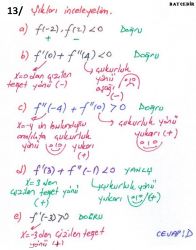 BATCEBİR
13/ Şıkları inceleyelim.
a) f(-2).f(2)<0 Doğru
+ -
b) f'(0)+f''(4)<0 Doğru
x=0 dan çizilen teğet yönü (-)
çukurluk yönü aşağı (-)
c) f''(-4)+f''(0)>0 Doğru
x=-4 ün bulunduğu aralıkta çukurluk yönü yukarı (+)
çukurluk yönü yukarı (+)
d) f'(3)+f''(-1)<0 YANLIŞ
x=3 den çizilen teğet yönü (+)
çukurluk yönü yukarı (+)
e) f'(-3)>0 DOĞRU
x=-3 den çizilen teğet yönü (+)
CEVAP: D